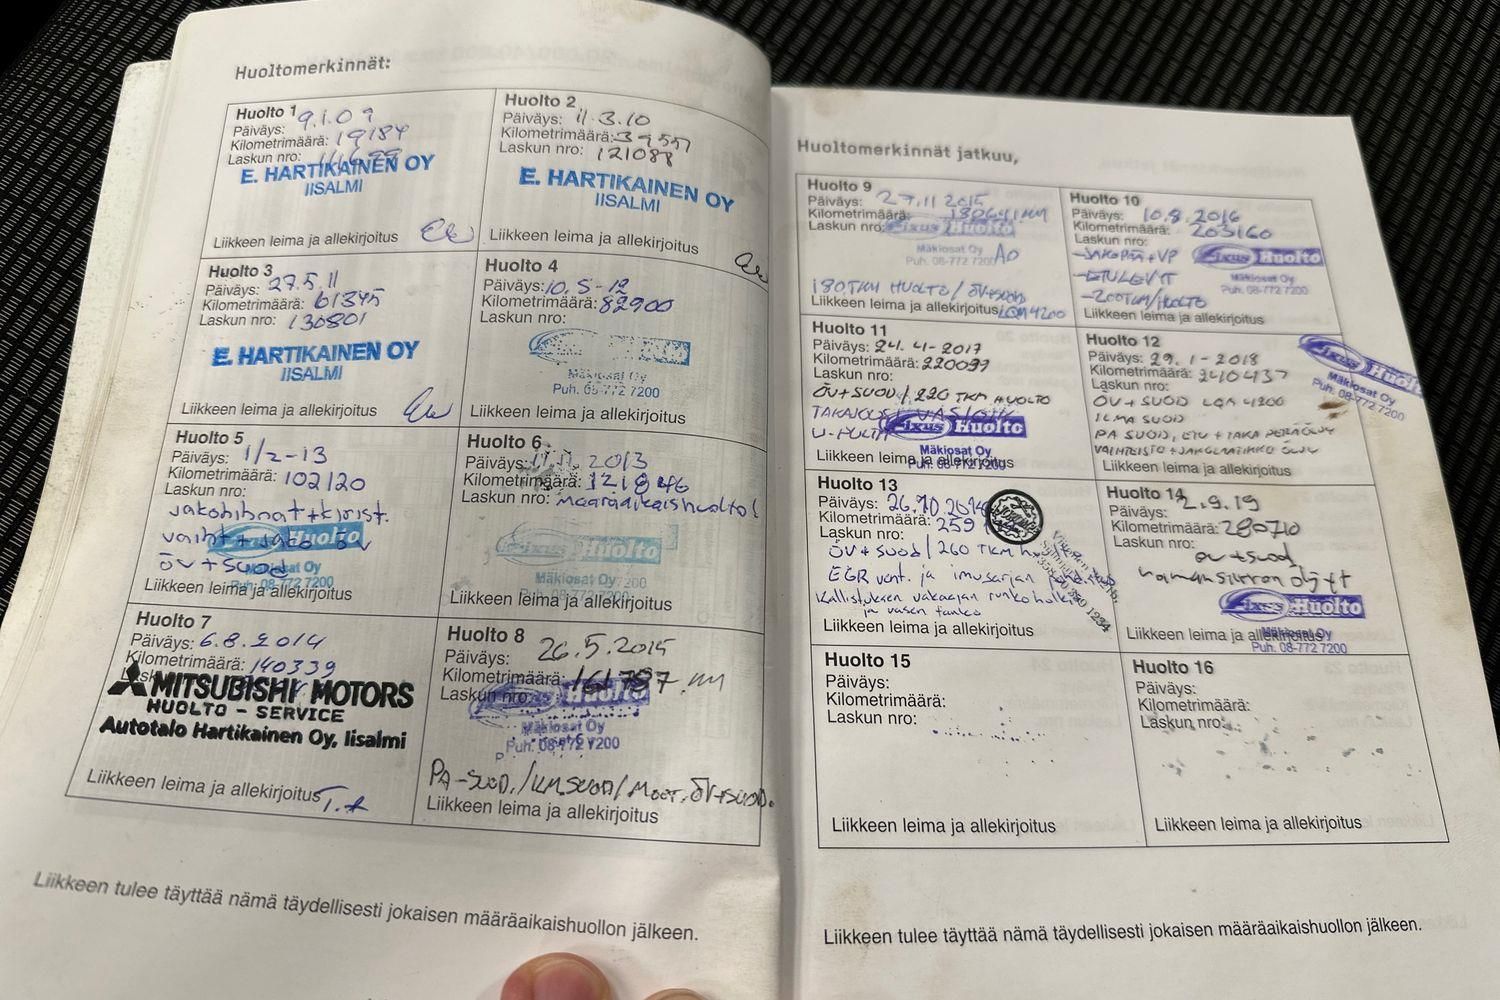 Huoltomerkinnät:
Huolto 1
Päiväys: 9.1.09
Kilometrimäärä: 19184
Laskun nro:
E. HARTIKAINEN OY
IISALMI
Liikkeen leima ja allekirjoitus
Huolto 2
Päiväys: 11.3.10
Kilometrimäärä: 39557
Laskun nro: 121088
E. HARTIKAINEN OY
IISALMI
Liikkeen leima ja allekirjoitus
Huolto 3
Päiväys: 27.5.11
Kilometrimäärä: 61345
Laskun nro: 130801
E. HARTIKAINEN OY
IISALMI
Liikkeen leima ja allekirjoitus
Huolto 4
Päiväys: 10.5-12
Kilometrimäärä: 82900
Laskun nro:
Mäkiosat Oy
Puh. 08-772 7200
Liikkeen leima ja allekirjoitus
Huolto 5
Päiväys: 1/2-13
Kilometrimäärä: 102120
Laskun nro:
jakohihnat + kirist.
vaiht + jako öv
Fixus Huolto
öv + suod
Puh. 08-772 7200
Liikkeen leima ja allekirjoitus
Huolto 6
Päiväys: 11.11.2013
Kilometrimäärä: 121846
Laskun nro: määräaikaishuolto!
Fixus Huolto
Mäkiosat Oy
Puh. 08-772 7200
Liikkeen leima ja allekirjoitus
Huolto 7
Päiväys: 6.8.2014
Kilometrimäärä: 140339
MITSUBISHI MOTORS
HUOLTO - SERVICE
Autotalo Hartikainen Oy, Iisalmi
Liikkeen leima ja allekirjoitus
Huolto 8
Päiväys: 26.5.2015
Kilometrimäärä: 161787
Laskun nro:
Fixus Huolto
Mäkiosat Oy
Puh. 08-772 7200
PA-SUOD./KM.SUOD/MOOT.ÖV+SUOD.
Liikkeen leima ja allekirjoitus
Liikkeen tulee täyttää nämä täydellisesti jokaisen määräaikaishuollon jälkeen.
Huoltomerkinnät jatkuu,
Huolto 9
Päiväys: 27.11 2015
Kilometrimäärä:
Laskun nro:
Fixus Huolto
Mäkiosat Oy
Puh. 08-772 7200
180TKM HUOLTO / ÖV+SUOD
Liikkeen leima ja allekirjoitus
Huolto 10
Päiväys: 10.8.2016
Kilometrimäärä: 203160
Laskun nro:
-JAKOPÄÄ+VP
Fixus Huolto
Mäkiosat Oy
Puh. 08-772 7200
-200TKM/HUOLTO
Liikkeen leima ja allekirjoitus
Huolto 11
Päiväys: 24.4-2017
Kilometrimäärä:
Laskun nro:
ÖV+SUOD / 220 TKM HUOLTO
Fixus Huolto
Mäkiosat Oy
Puh. 08-772 7200
Liikkeen leima ja allekirjoitus
Huolto 12
Päiväys: 29.1-2018
Kilometrimäärä: 240437
Laskun nro:
ÖV+SUOD LQM 4200
ILMA SUOD
PA SUOD, ETU + TAKA PERÄÖLJY
VAIHTEISTO + JAKOLAATIKKO ÖLJY
Fixus Huolto
Mäkiosat Oy
Puh. 08-772 7200
Liikkeen leima ja allekirjoitus
Huolto 13
Päiväys: 26.10
Kilometrimäärä: 259
Laskun nro:
ÖV+SUOD / 260 TKM
EGR vent. ja imusarjan
Liikkeen leima ja allekirjoitus
Huolto 14
Päiväys: 2.9.19
Kilometrimäärä: 280710
Laskun nro:
öv+suod
Fixus Huolto
Mäkiosat Oy
Puh. 08-772 7200
Liikkeen leima ja allekirjoitus
Huolto 15
Päiväys:
Kilometrimäärä:
Laskun nro:
Liikkeen leima ja allekirjoitus
Huolto 16
Päiväys:
Kilometrimäärä:
Laskun nro:
Liikkeen leima ja allekirjoitus
Liikkeen tulee täyttää nämä täydellisesti jokaisen määräaikaishuollon jälkeen.